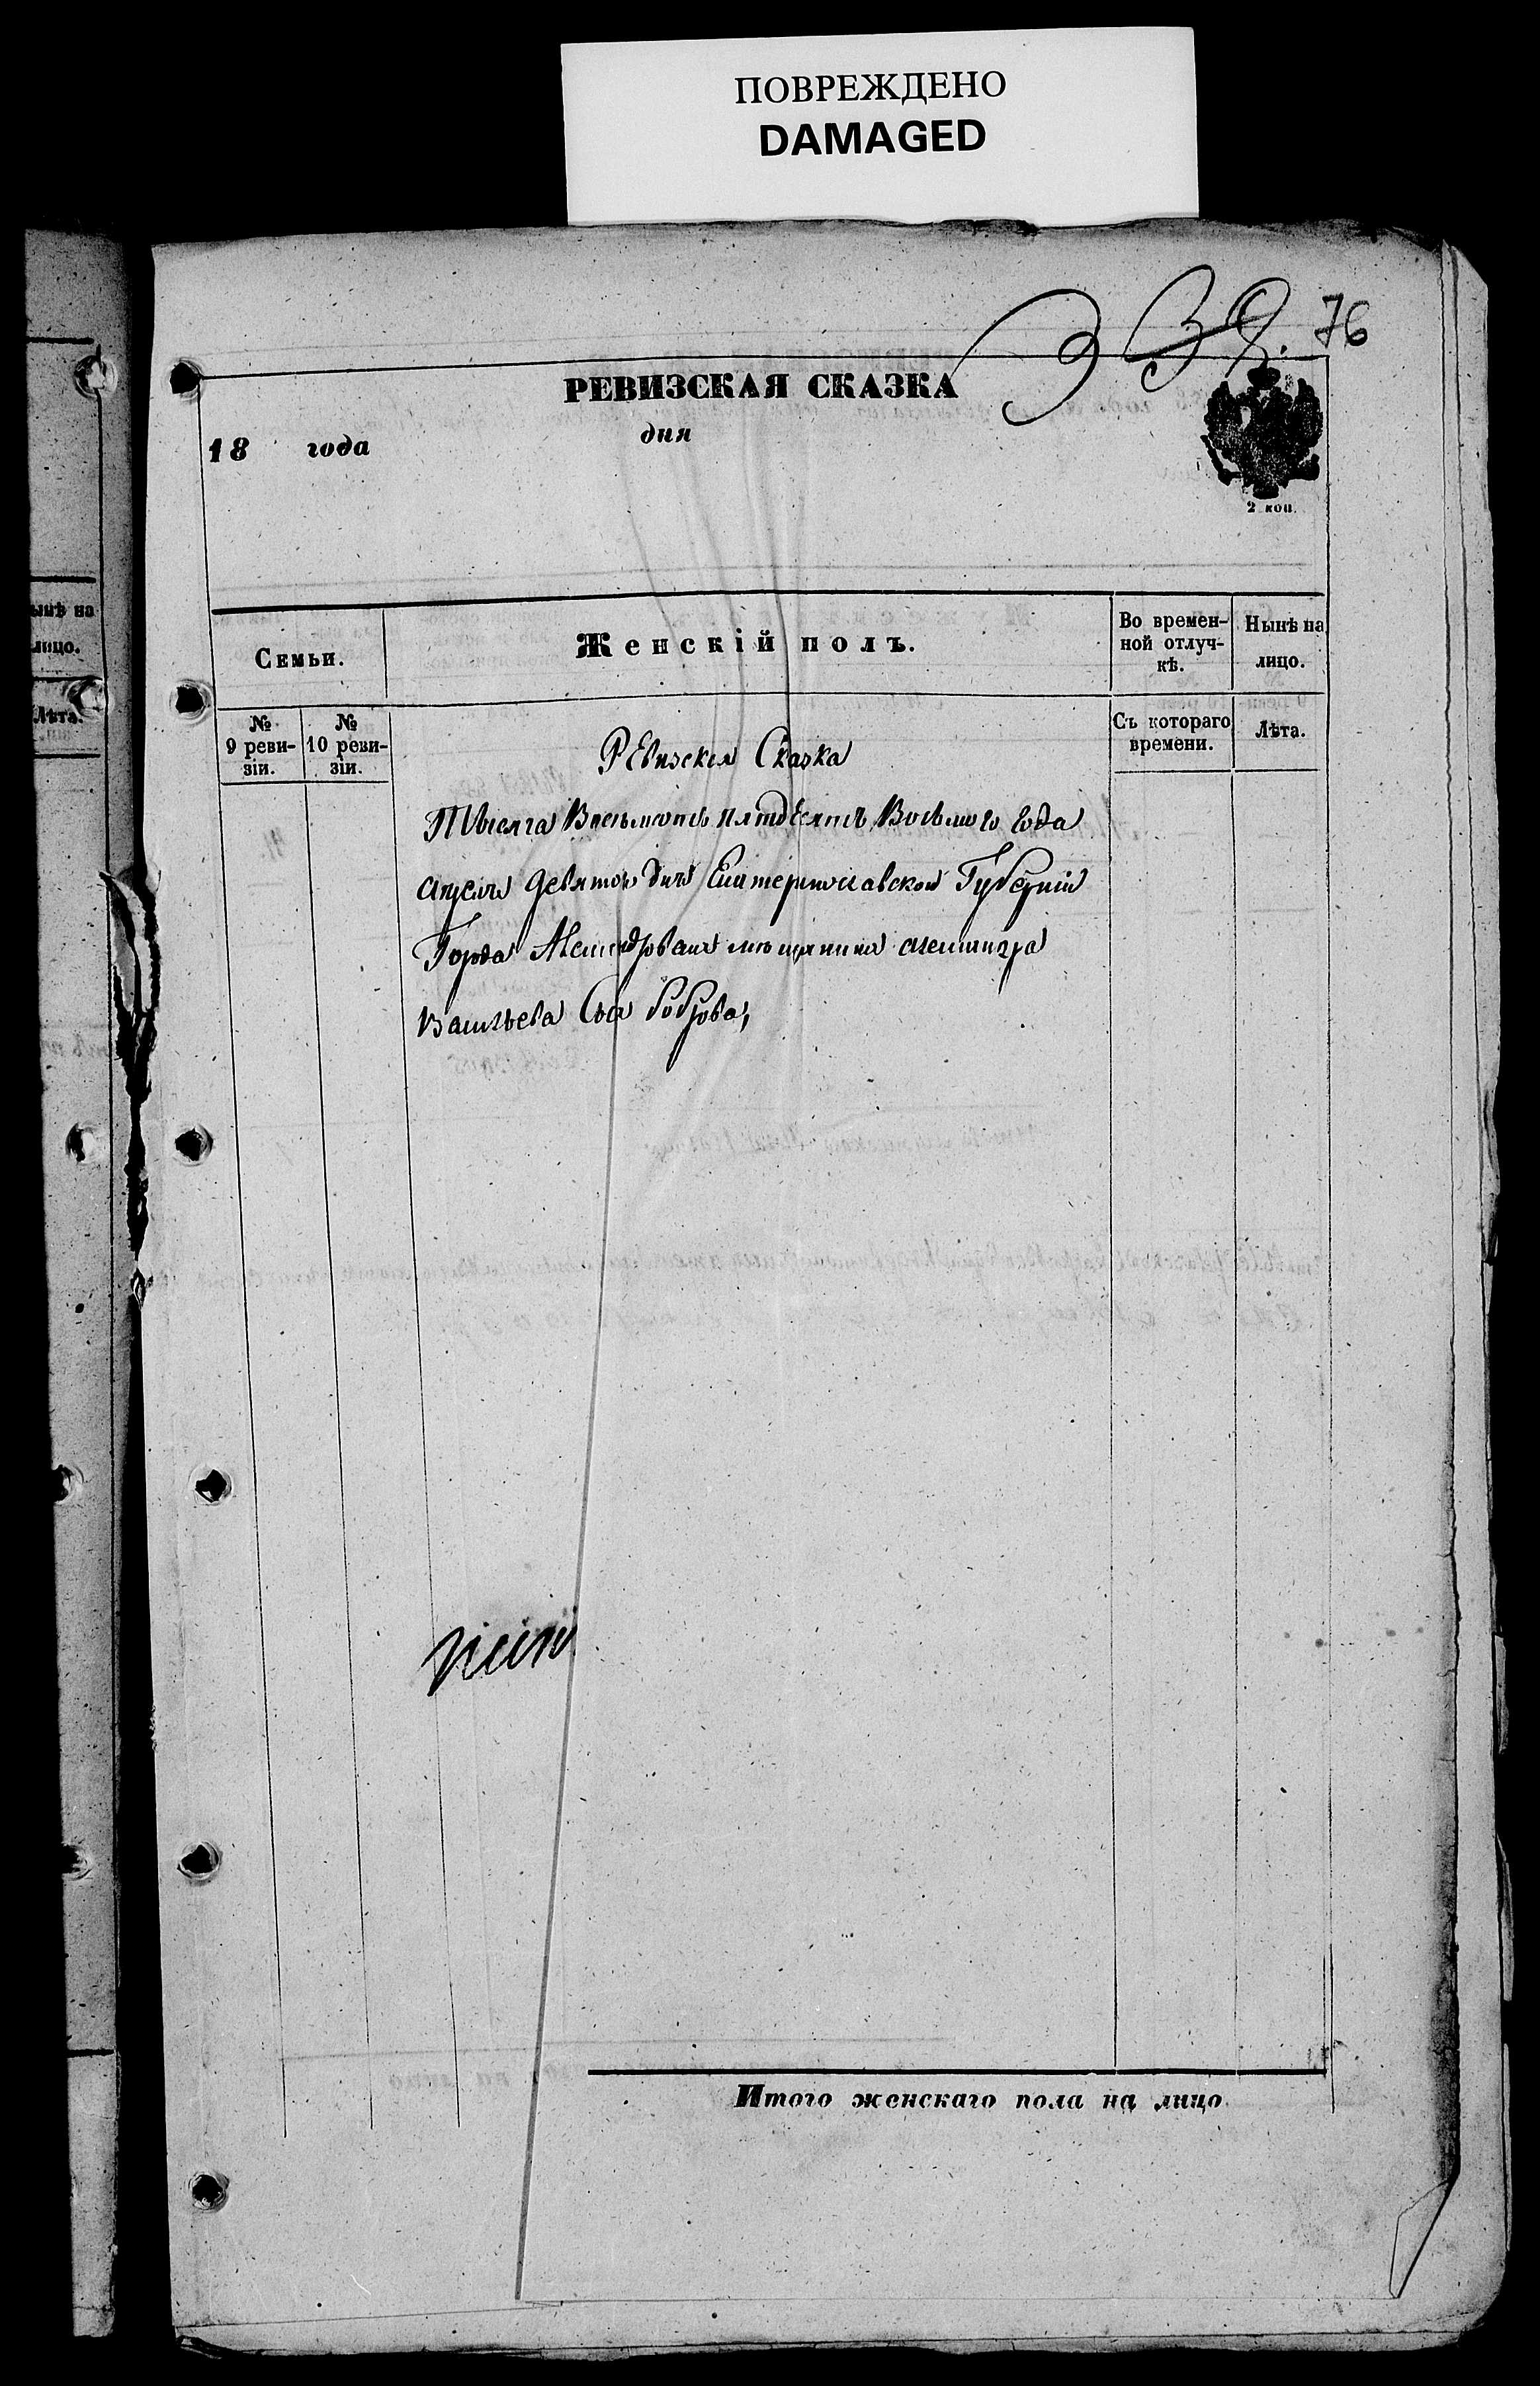 ПОВРЕЖДЕНО
DAMAGED
76
РЕВИЗСКАЯ СКАЗКА
18 года дня
2 коп.
Семьи.
Женскій полъ.
Во времен-
ной отлуч-
кѣ.
Нынѣ на
лицо.
№
9 реви-
зіи.
№
10 реви-
зіи.
Съ котораго
времени.
Лѣта.
Ревизская Сказка
Тысяча Восемьсотъ пятдесятъ Восьмого Года
апреля девятого дня Екатеринославской Губерніи
Города Александровска мѣщанина
Васильева Сына Боброва,
Итого женскаго пола на лицо
ынѣ на
лицо.
Лѣта.